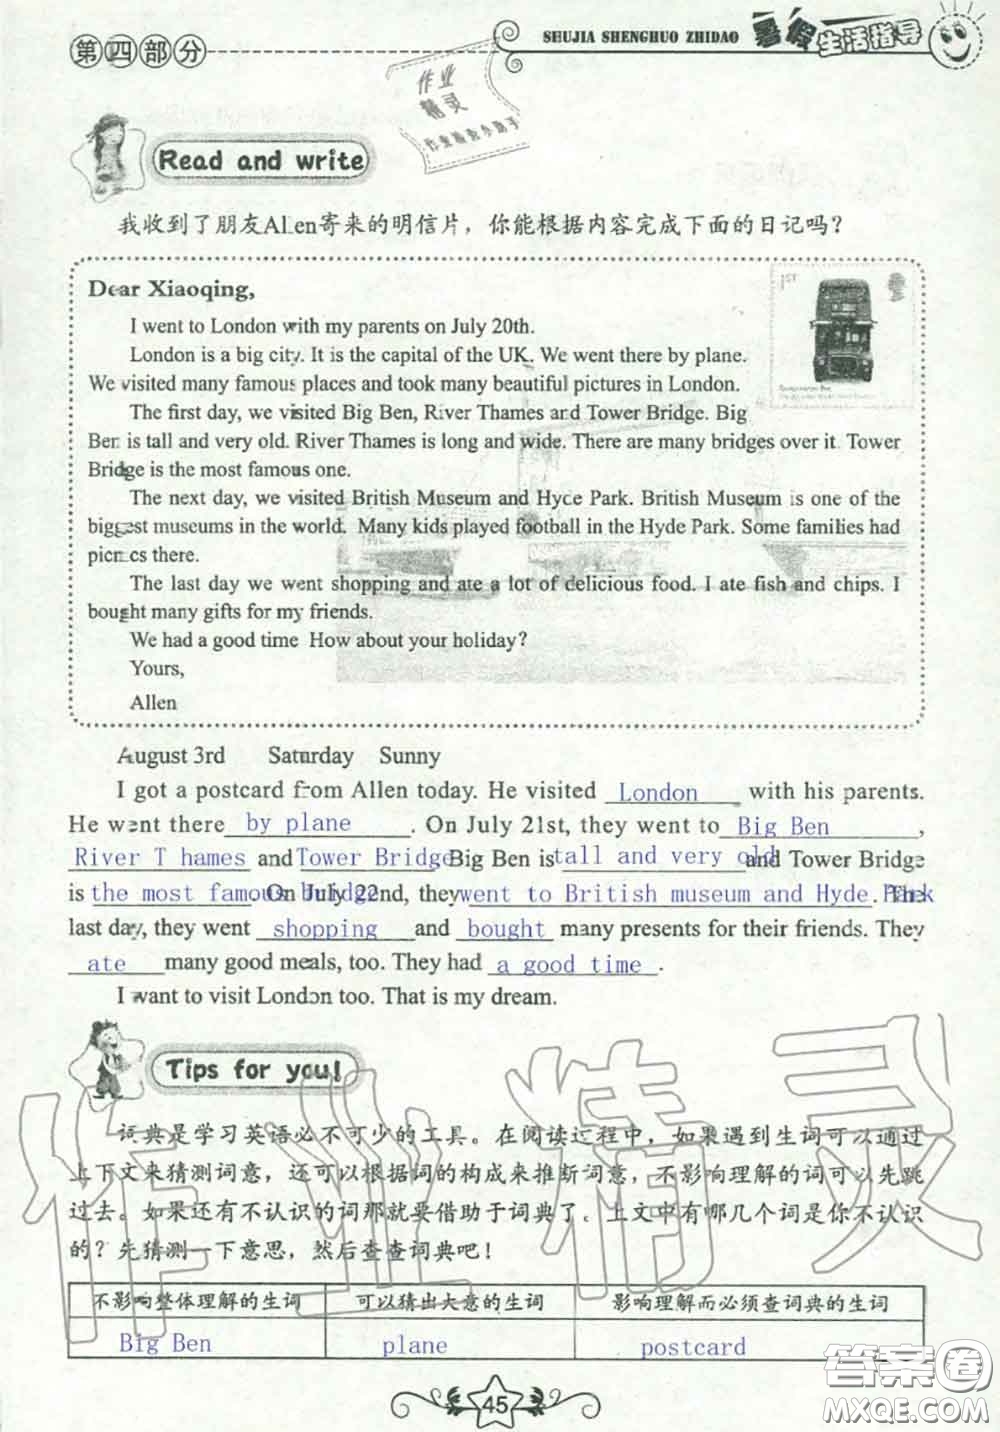 第四部分
SHUJIA SHENGHUO ZHIDAO 暑假生活指导
作业
精灵
Read and write
我收到了朋友Allen寄来的明信片，你能根据内容完成下面的日记吗？
1ST
Dear Xiaoqing,
I went to London with my parents on July 20th.
London is a big city. It is the capital of the UK. We went there by plane.
We visited many famous places and took many beautiful pictures in London.
The first day, we visited Big Ben, River Thames and Tower Bridge. Big
Ben is tall and very old. River Thames is long and wide. There are many bridges over it. Tower
Bridge is the most famous one.
The next day, we visited British Museum and Hyde Park. British Museum is one of the
biggest museums in the world. Many kids played football in the Hyde Park. Some families had
picnics there.
The last day we went shopping and ate a lot of delicious food. I ate fish and chips. I
bought many gifts for my friends.
We had a good time How about your holiday?
Yours,
Allen
August 3rd Saturday Sunny
I got a postcard from Allen today. He visited London with his parents.
He went there by plane . On July 21st, they went to Big Ben ,
River T hames and Tower Bridge Big Ben is tall and very old and Tower Bridge
is the most famous bridge On July 22nd, they went to British museum and Hyde Park . The
last day, they went shopping and bought many presents for their friends. They
ate many good meals, too. They had a good time .
I want to visit London too. That is my dream.
Tips for you!
词典是学习英语必不可少的工具。在阅读过程中，如果遇到生词可以通过
上下文来猜测词意，还可以根据词的构成来推断词意，不影响理解的词可以先跳
过去。如果还有不认识的词那就要借助于词典了。上文中有哪几个词是你不认识
的？先猜测一下意思，然后查查词典吧！
不影响整体理解的生词 可以猜出大意的生词 影响理解而必须查词典的生词
Big Ben plane postcard
作业精灵
45
答案圈
MXQE.COM